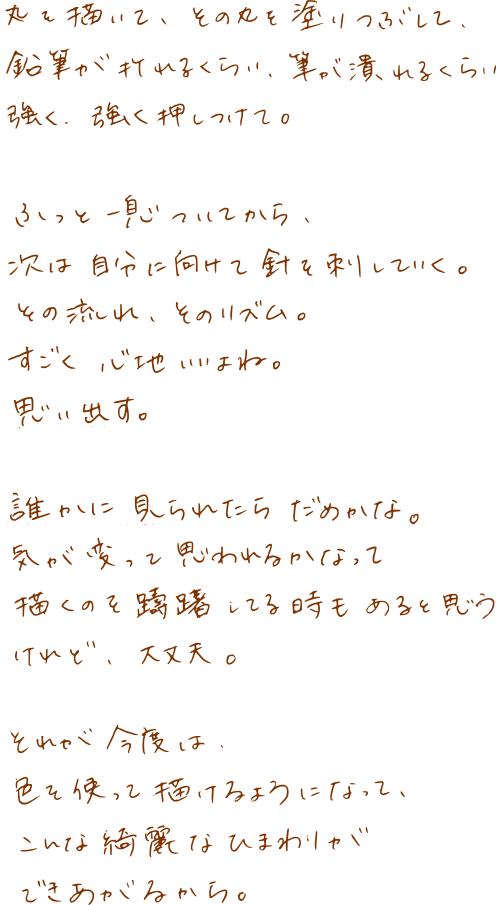 丸を描いて、その丸を塗りつぶして、
鉛筆が折れるくらい、筆が潰れるくらい
強く、強く押しつけて。
ふっと一息ついてから、
次は自分に向けて針を刺していく。
その流れ、そのリズム。
すごく心地いいよね。
思い出す。
誰かに見られたらだめかな。
気が変って思われるかなって
描くのを躊躇してる時もあると思う
けれど、大丈夫。
それが今度は、
色を使って描けるようになって、
こんな綺麗なひまわりが
できあがるから。